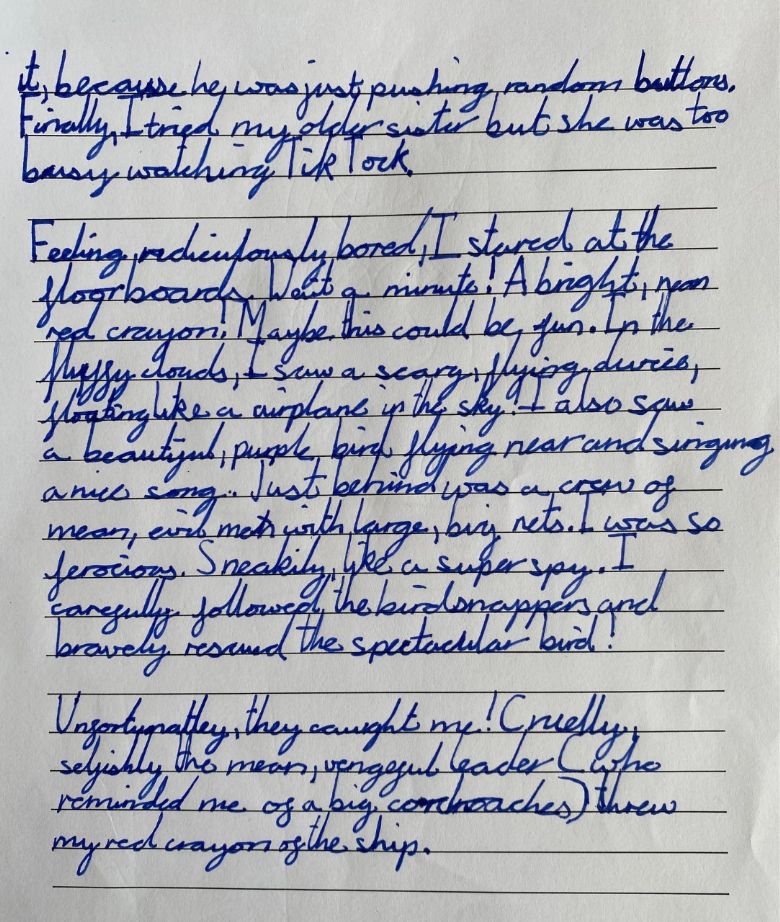 it, because he was just pushing random buttons.
Finally, I tried my older sister but she was too
busy watching Tik Tock.
Feeling rediculously bored, I stared at the
floorboards. Wait a minute! A bright, neon
red crayon! Maybe this could be fun. In the
fluffy clouds, I saw a scary, flying
floating like a airplane in the sky! I also saw
a beautiful, purple, bird flying near and singing
a nice song. Just behind was a crew of
mean, evil men with large, big nets. I was so
ferocious. Sneakily, like a super spy. I
carefully followed the birdsnappers and
bravely rescued the spectacular bird!
Unfortynatley, they caught me! Cruelly,
selfishly the mean, vengeful leader (who
reminded me of a big ) threw
my red crayon of the ship.